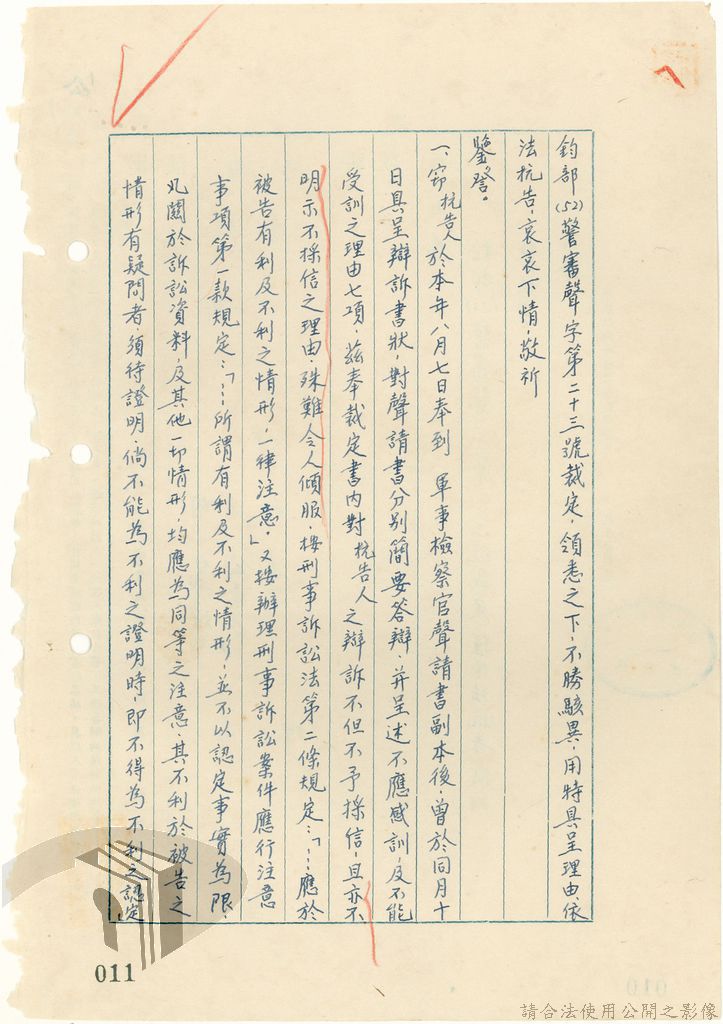 鈞部(52)警審聲字第二十三號裁定，領悉之下，不勝駭異，用特具呈理由，依
法抗告，哀哀下情，敬祈
鑒詧。
一、窃抗告人於本年八月七日奉到　軍事檢察官聲請書副本後，曾於同月十
日具呈辯訴書狀，對聲請書分別簡要答辯，并呈述不應感訓，及不能
受訓之理由七項，茲奉裁定書內對抗告人之辯訴不但不予採信，且亦不
明示不採信之理由，殊難令人傾服，按刑事訴訟法第二條規定：「…應於
被告有利及不利之情形，一律注意」又按辦理刑事訴訟案件應行注意
事項第一款規定：「…所謂有利及不利之情形，並不以認定事實為限，
凡關於訴訟資料，及其他一切情形，均應為同等之注意，其不利於被告之
情形有疑問者，須待證明，倘不能為不利之證明時，即不得為不利之認定」
011
請合法使用公開之影像